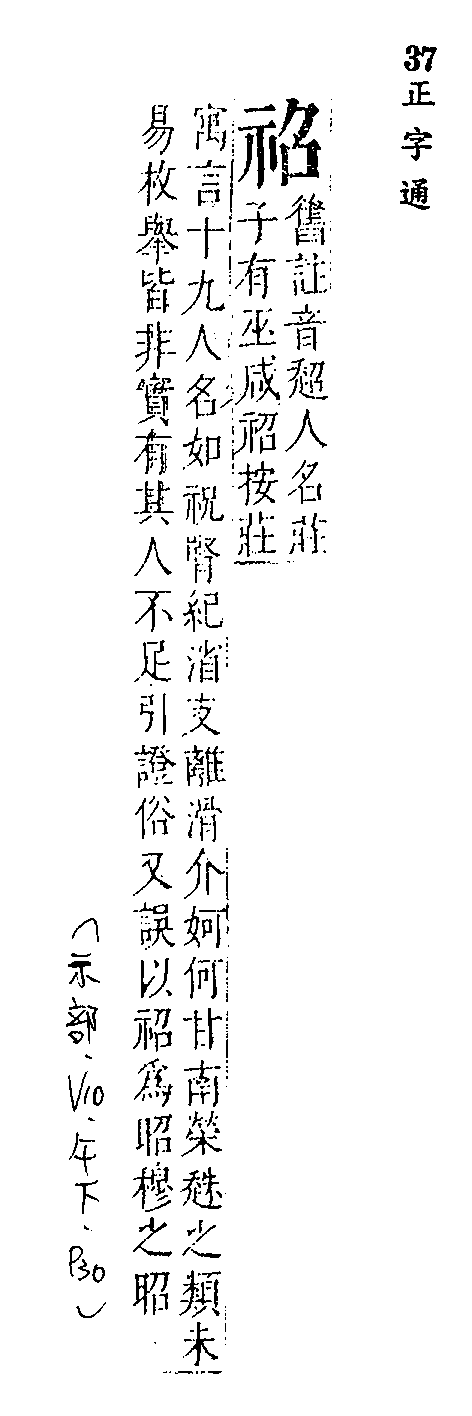 37正字通
祒
舊註音超人名莊
子有巫咸祒按莊
寓言十九人名如祝腎紀渻支離滑介妸何甘南榮趎之類未
易枚舉皆非實有其人不足引證俗又誤以祒爲昭穆之昭
(示部、V10、午下、P30)